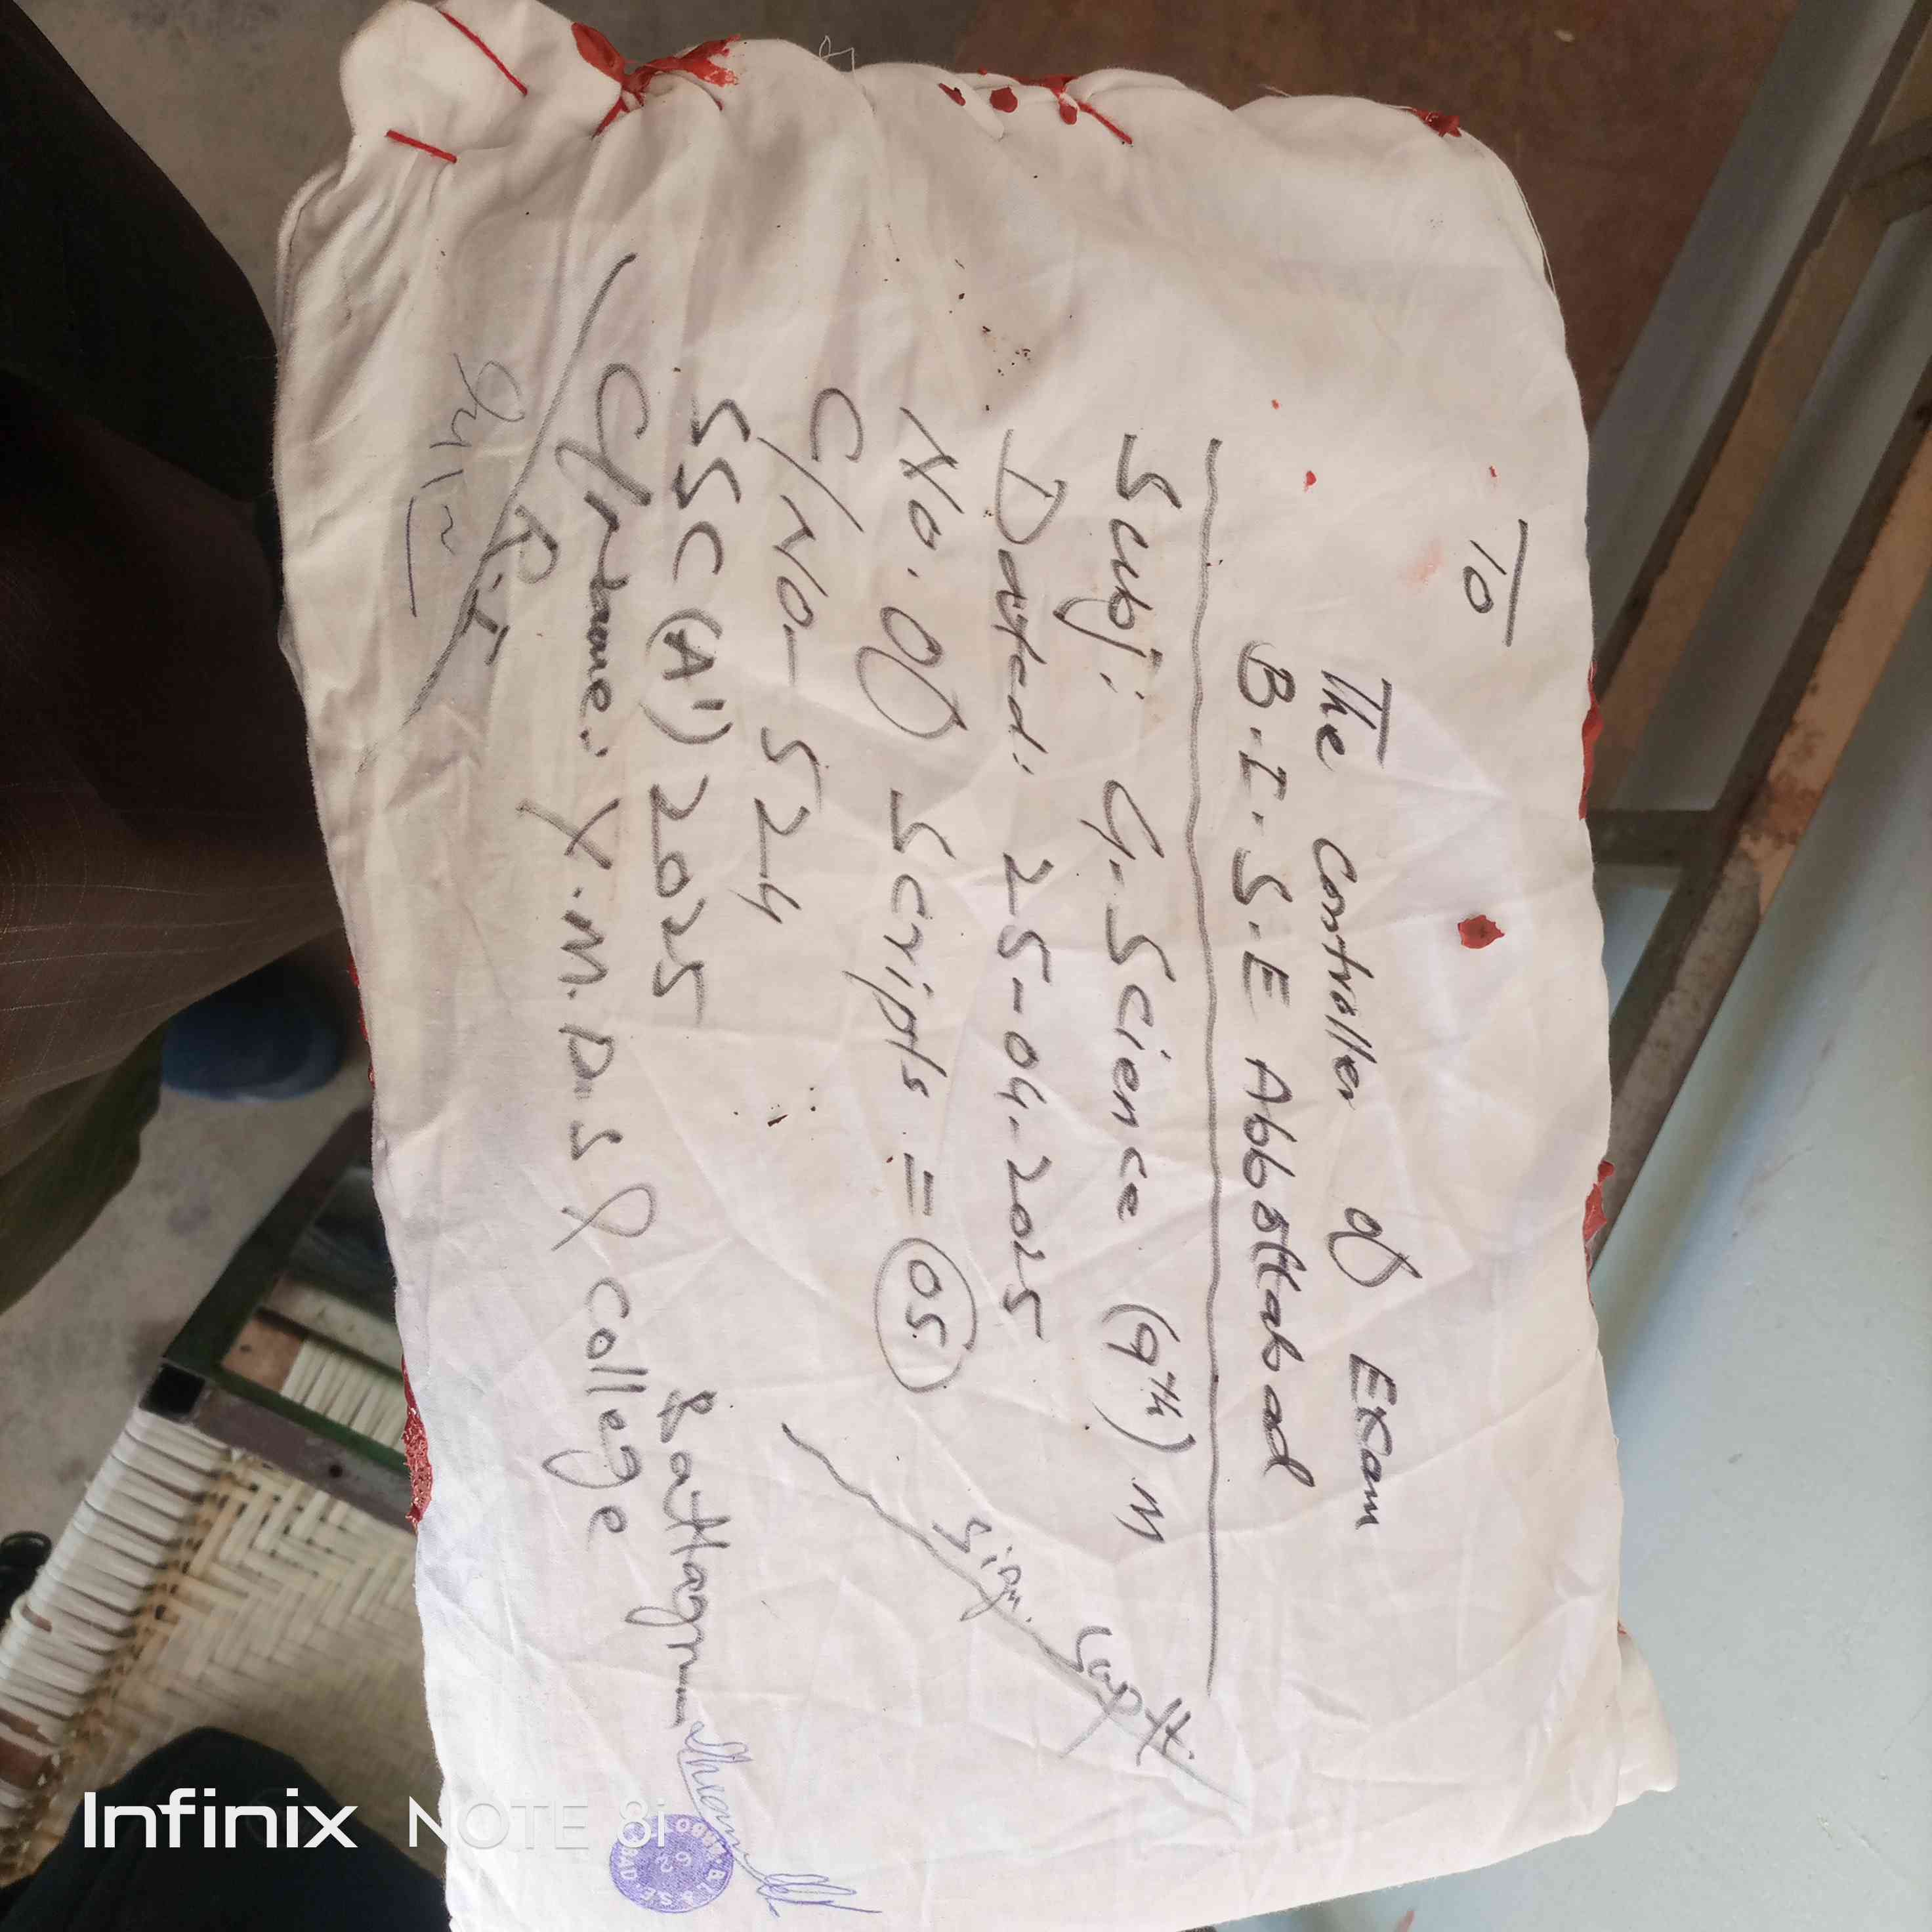 To
The Controller of Exam
B.I.S.E Abbottabad
Subj: G.Science (9th) M
Dated: 25-04-2025
No. of Scripts = 05
C/No- 524
SSC (A1) 2025
C/name: Y.M.P.S & College
Battagram
Infinix NOTE 8i